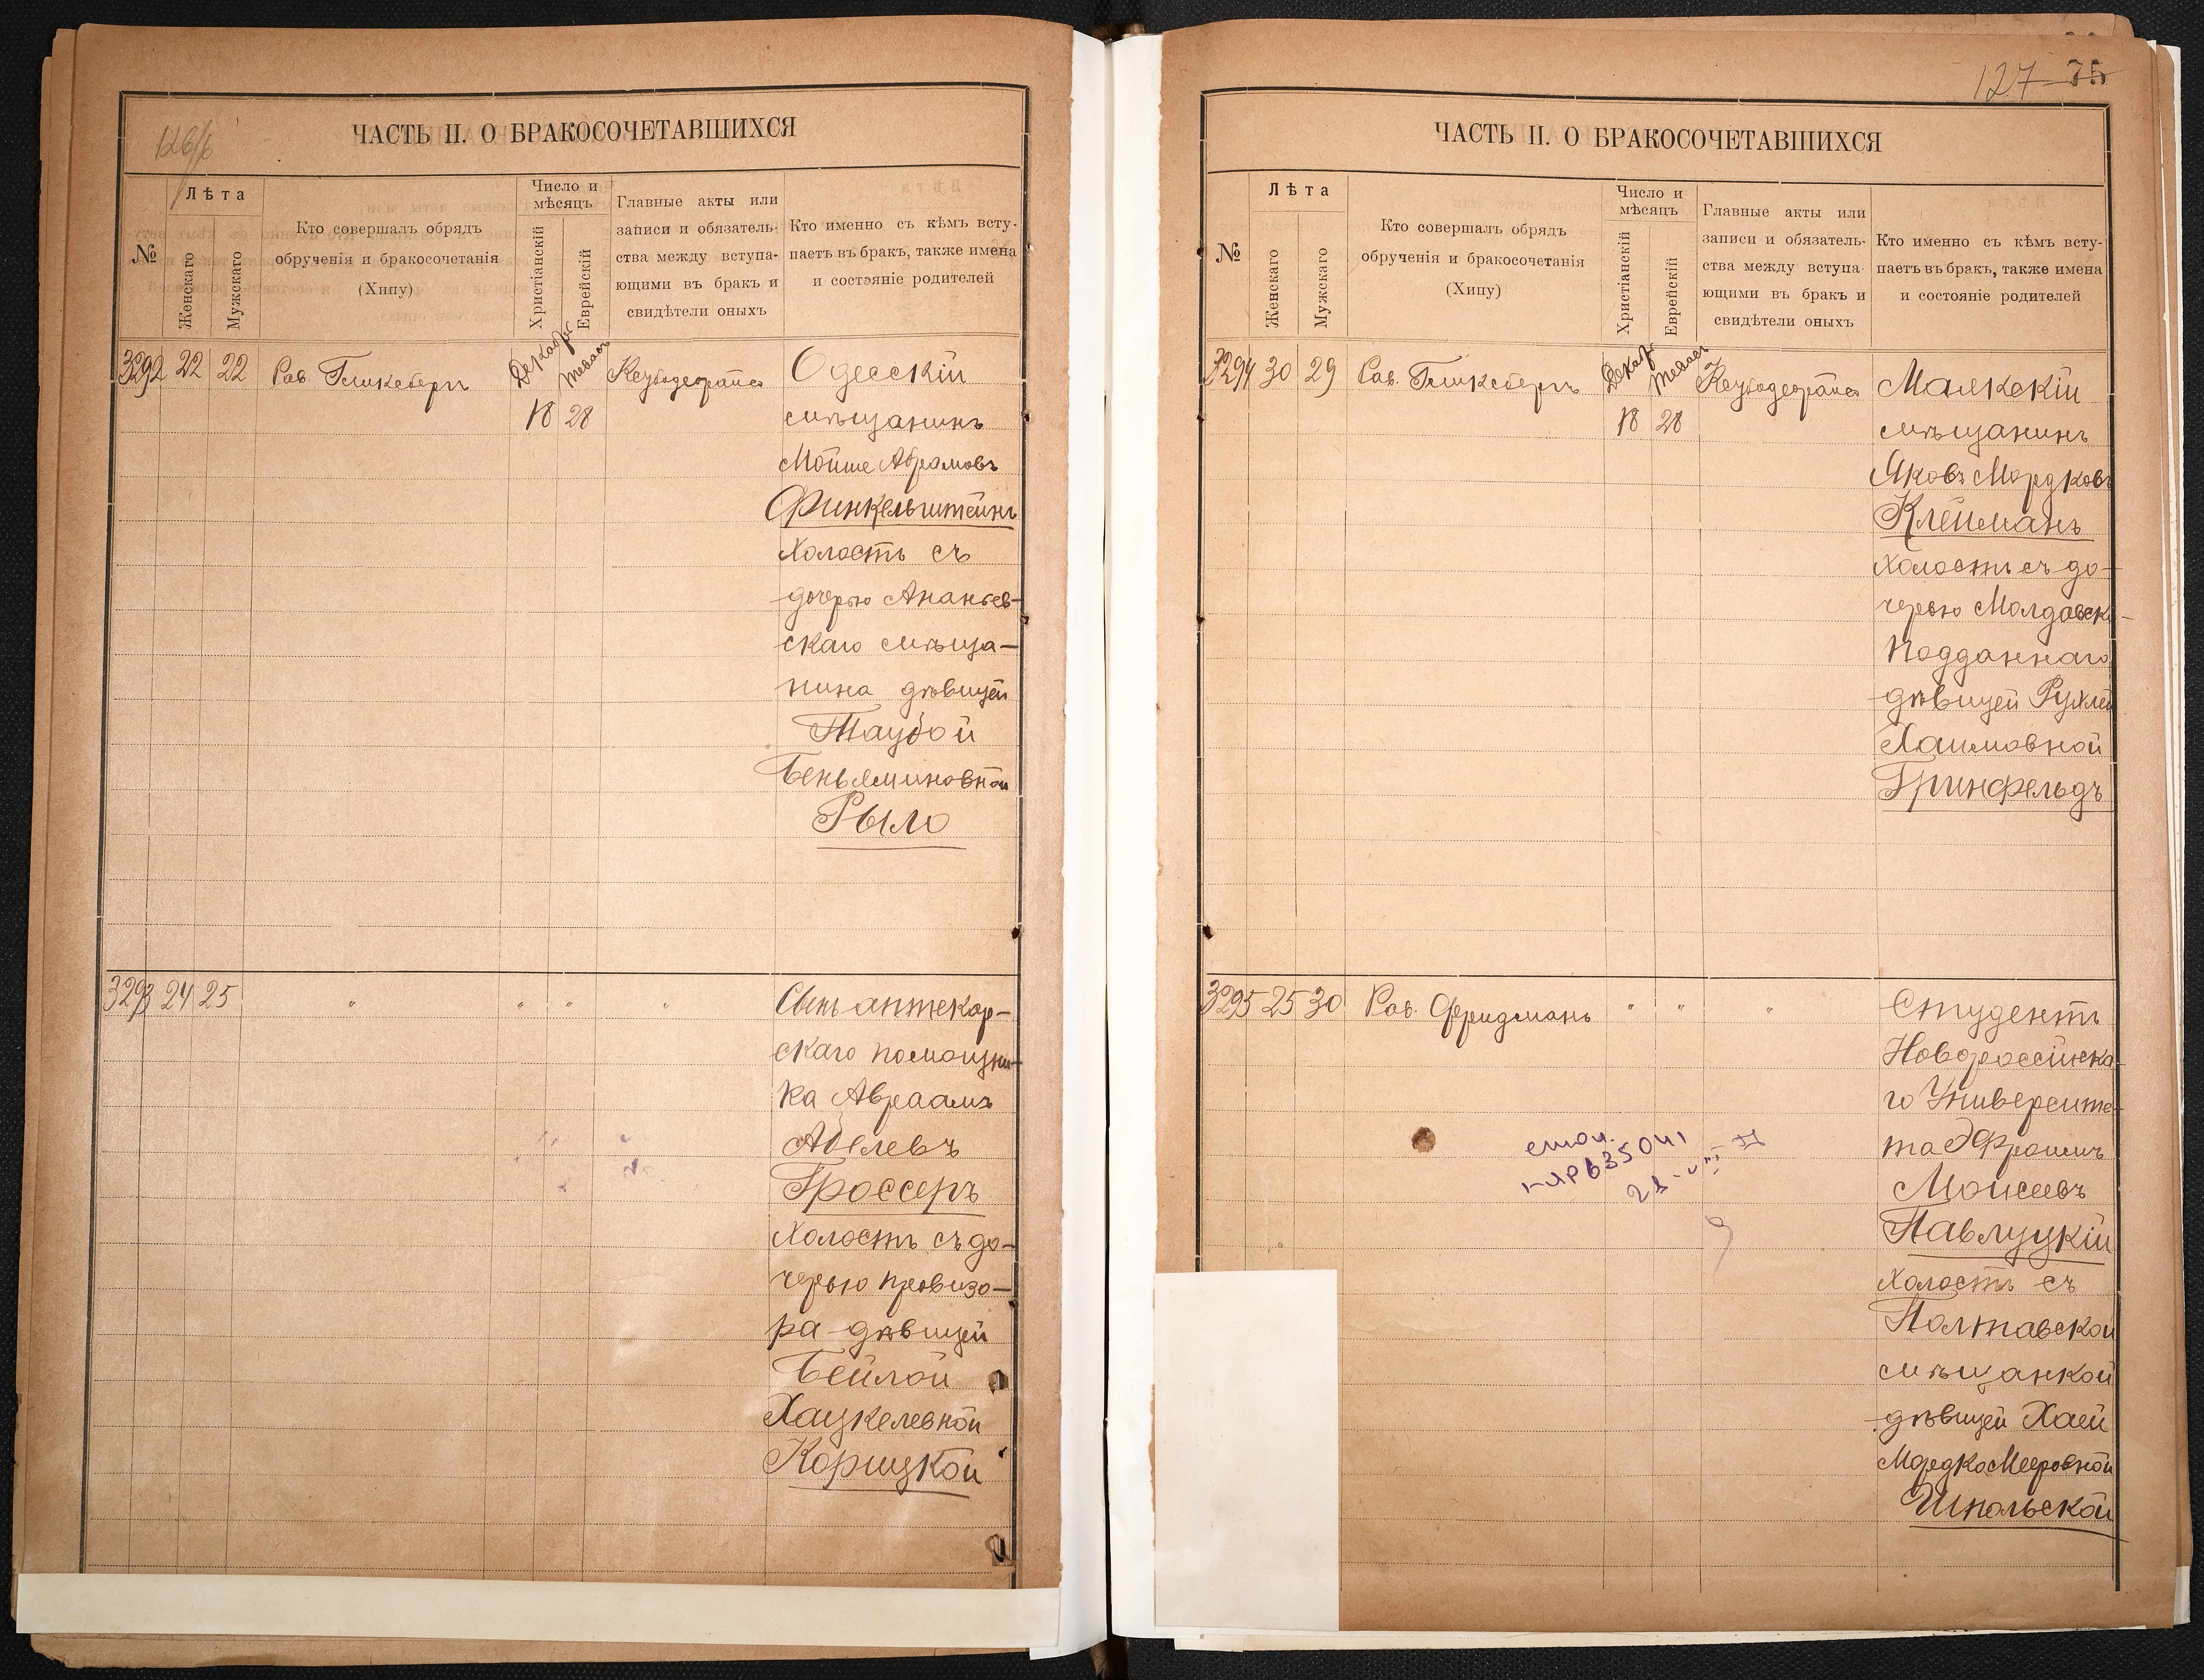 126/б
ЧАСТЬ II. О БРАКОСОЧЕТАВШИХСЯ
№
Лѣта
Женскаго
Мужскаго
Кто совершалъ обрядъ
обрученія и бракосочетанія
(Хипу)
Число и
мѣсяцъ
Христіанскій
Еврейскій
Главные акты или
записи и обязатель-
ства между вступа-
ющими въ бракъ и
свидѣтели оныхъ
Кто именно съ кѣмъ всту-
паетъ въ бракъ, также имена
и состояніе родителей
3292 22 22 Рав. Гликсбергъ
18 28
Одесскій
мѣщанинъ
Мойше Абрамовъ
Финкельштейнъ
холостъ съ
дочерью Ананьев-
скаго мѣща-
нина дѣвицей
Таубой
Беньяминовной
Рыло
3293 24 25 " " " "
Сынъ аптекар-
скаго помощни-
ка Авраамъ
Абелевъ
Гроссеръ
холостъ съ до-
черью провизо-
ра дѣвицей
Бейлой
Хацкелевной
Корицкой
127 75
ЧАСТЬ II. О БРАКОСОЧЕТАВШИХСЯ
№
Лѣта
Женскаго
Мужскаго
Кто совершалъ обрядъ
обрученія и бракосочетанія
(Хипу)
Число и
мѣсяцъ
Христіанскій
Еврейскій
Главные акты или
записи и обязатель-
ства между вступа-
ющими въ бракъ и
свидѣтели оныхъ
Кто именно съ кѣмъ всту-
паетъ въ бракъ, также имена
и состояніе родителей
3294 30 29 Рав. Гликсбергъ
18 28
мѣщанинъ
Яковъ Мордковъ
Клейманъ
холостъ съ до-
черью Молдавск-
подданнаго
дѣвицей Рухлей
Хаимовной
Гринфельдъ
3295 25 30 Рав. Фридманъ " " "
Студентъ
Новороссійска-
го Университе-
та Эфроимъ
Моисеевъ
Павлуцкій
холостъ съ
Полтавской
мѣщанкой
дѣвицей Хаей
МордкоМееровной
Шпольской